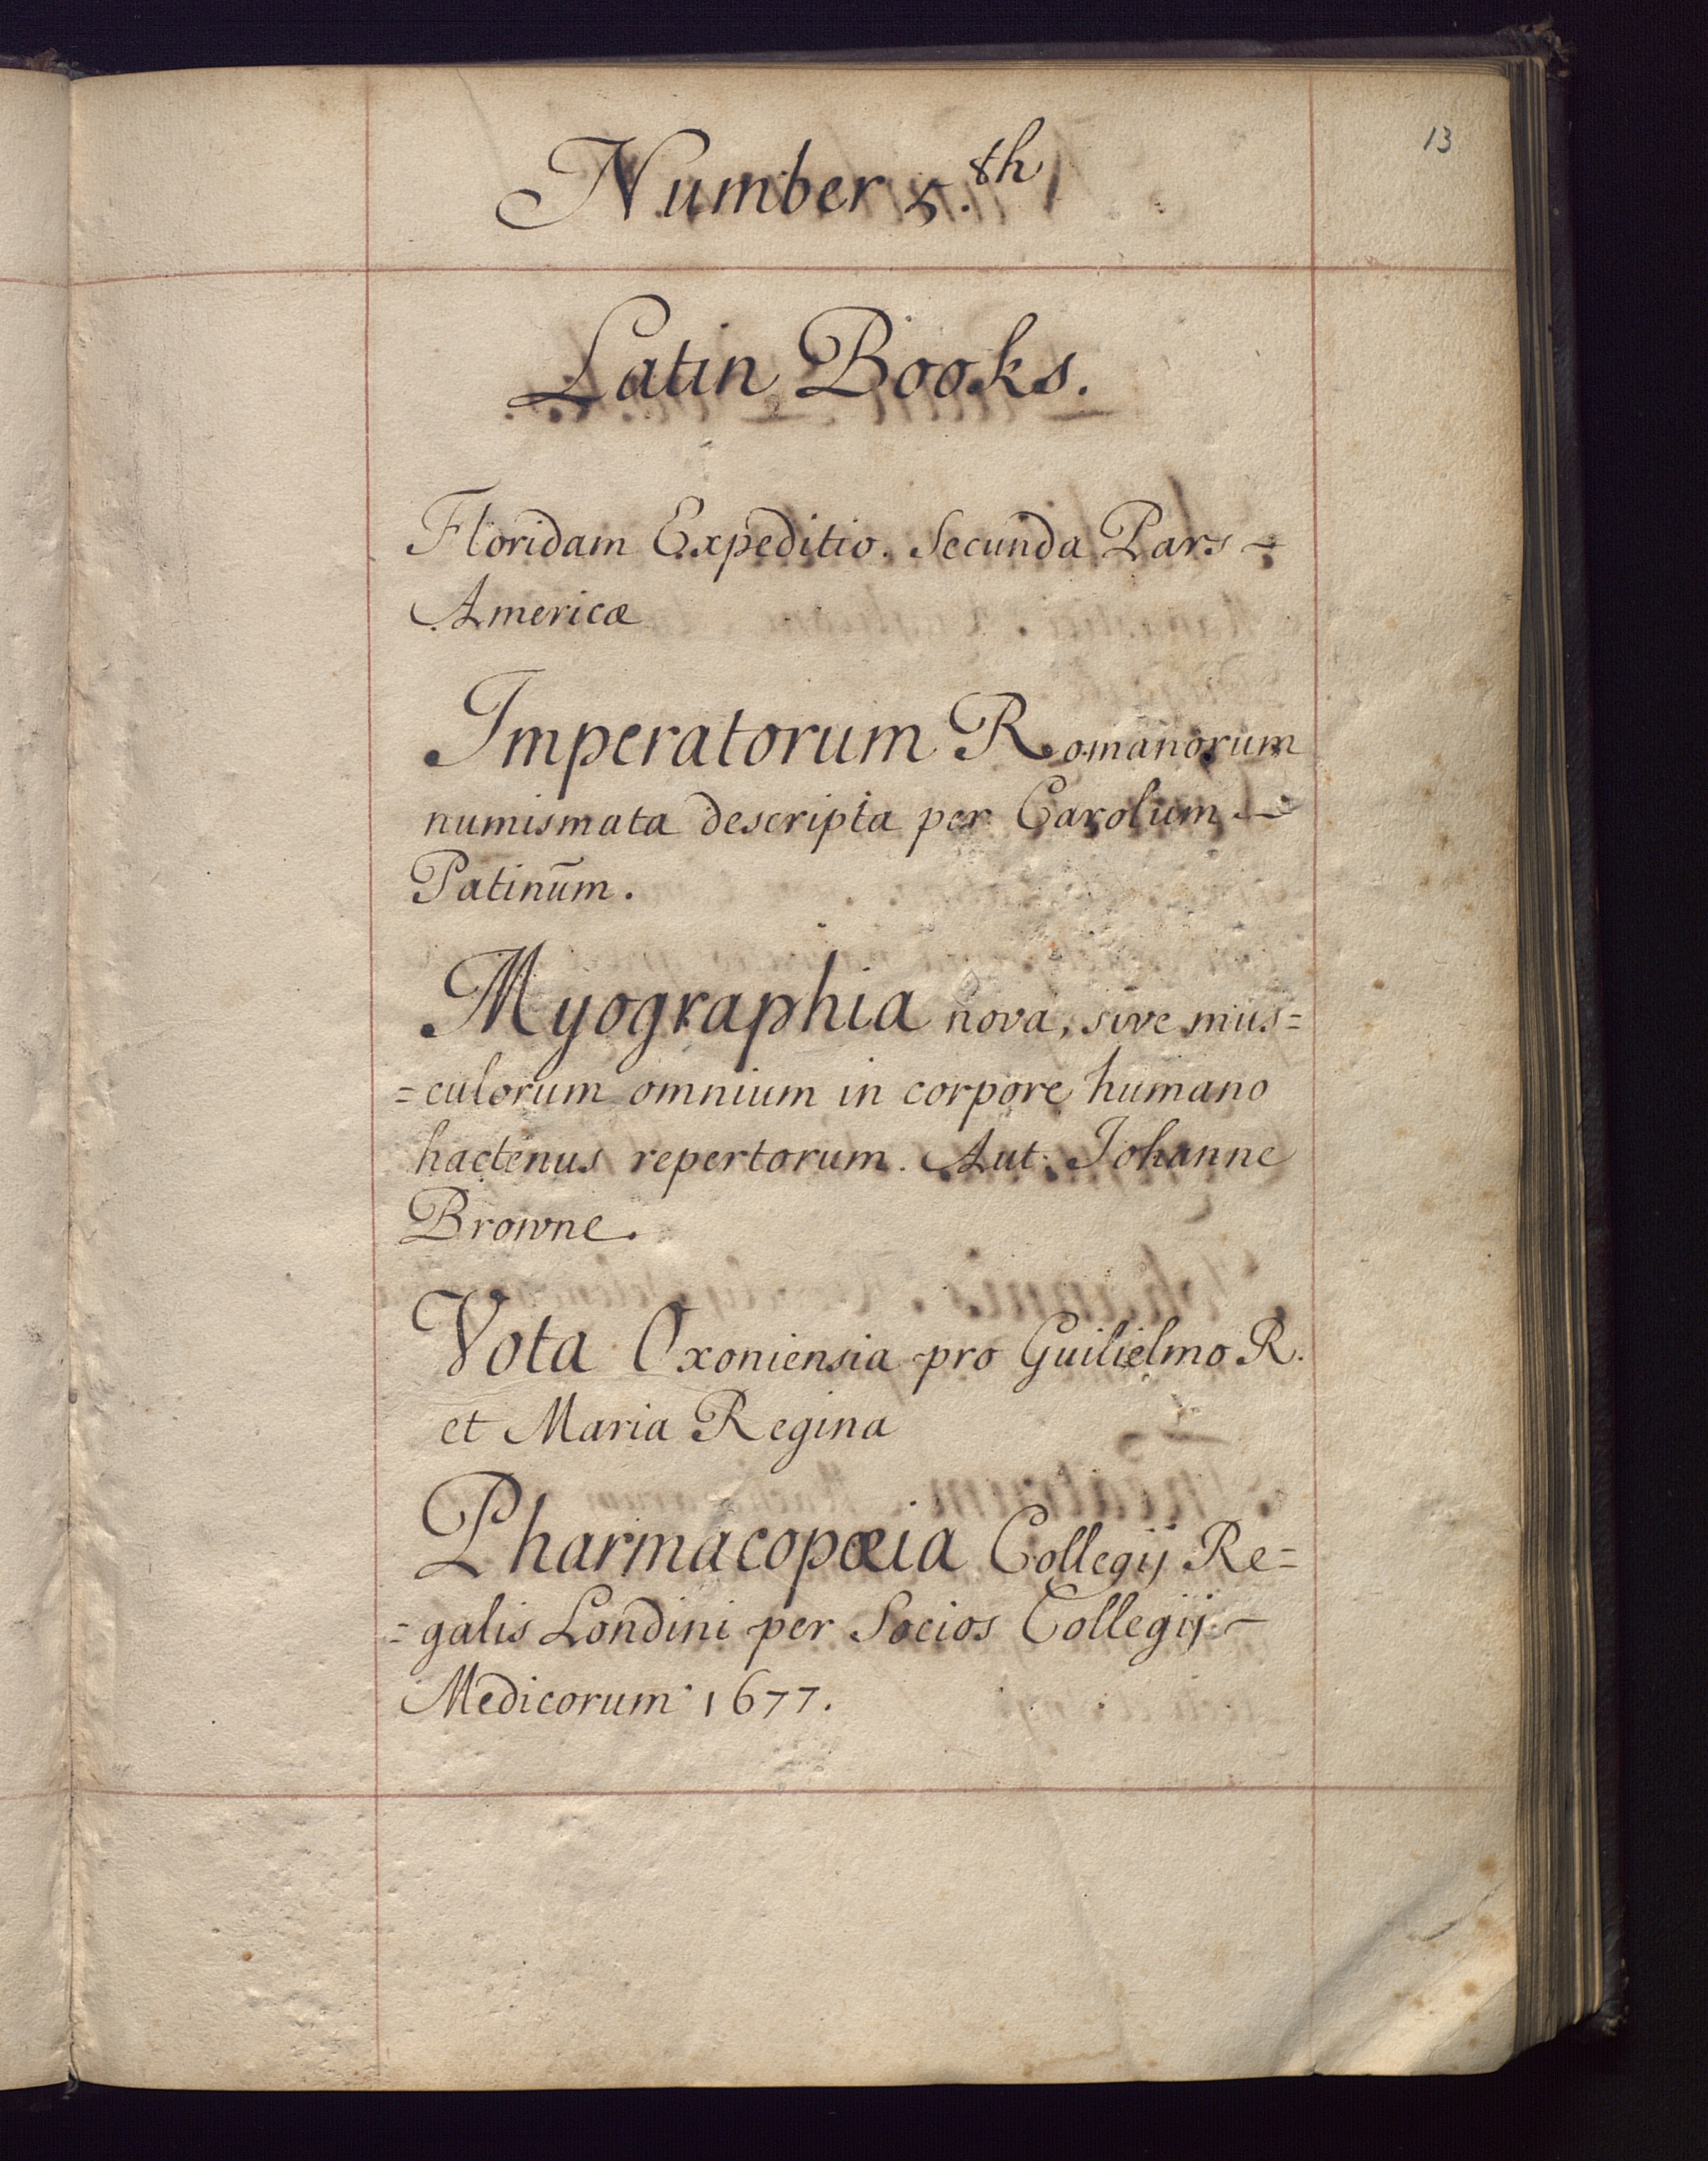 13
Number 5.th
Latin Books.
Floridam Expeditio. Secunda Pars -
Americæ
Imperatorum Romanorum
numismata descripta per Carolum -
Patinūm.
Myographia nova, sive mus=
=culorum omnium in corpore humano
hactenus repertorum. Aut. Johanne
Browne.
Vota Oxoniensia pro Guilielmo R.
et Maria Regina
Pharmacopœia Collegij Re=
=galis Londini per Socios Collegij -
Medicorum 1677.